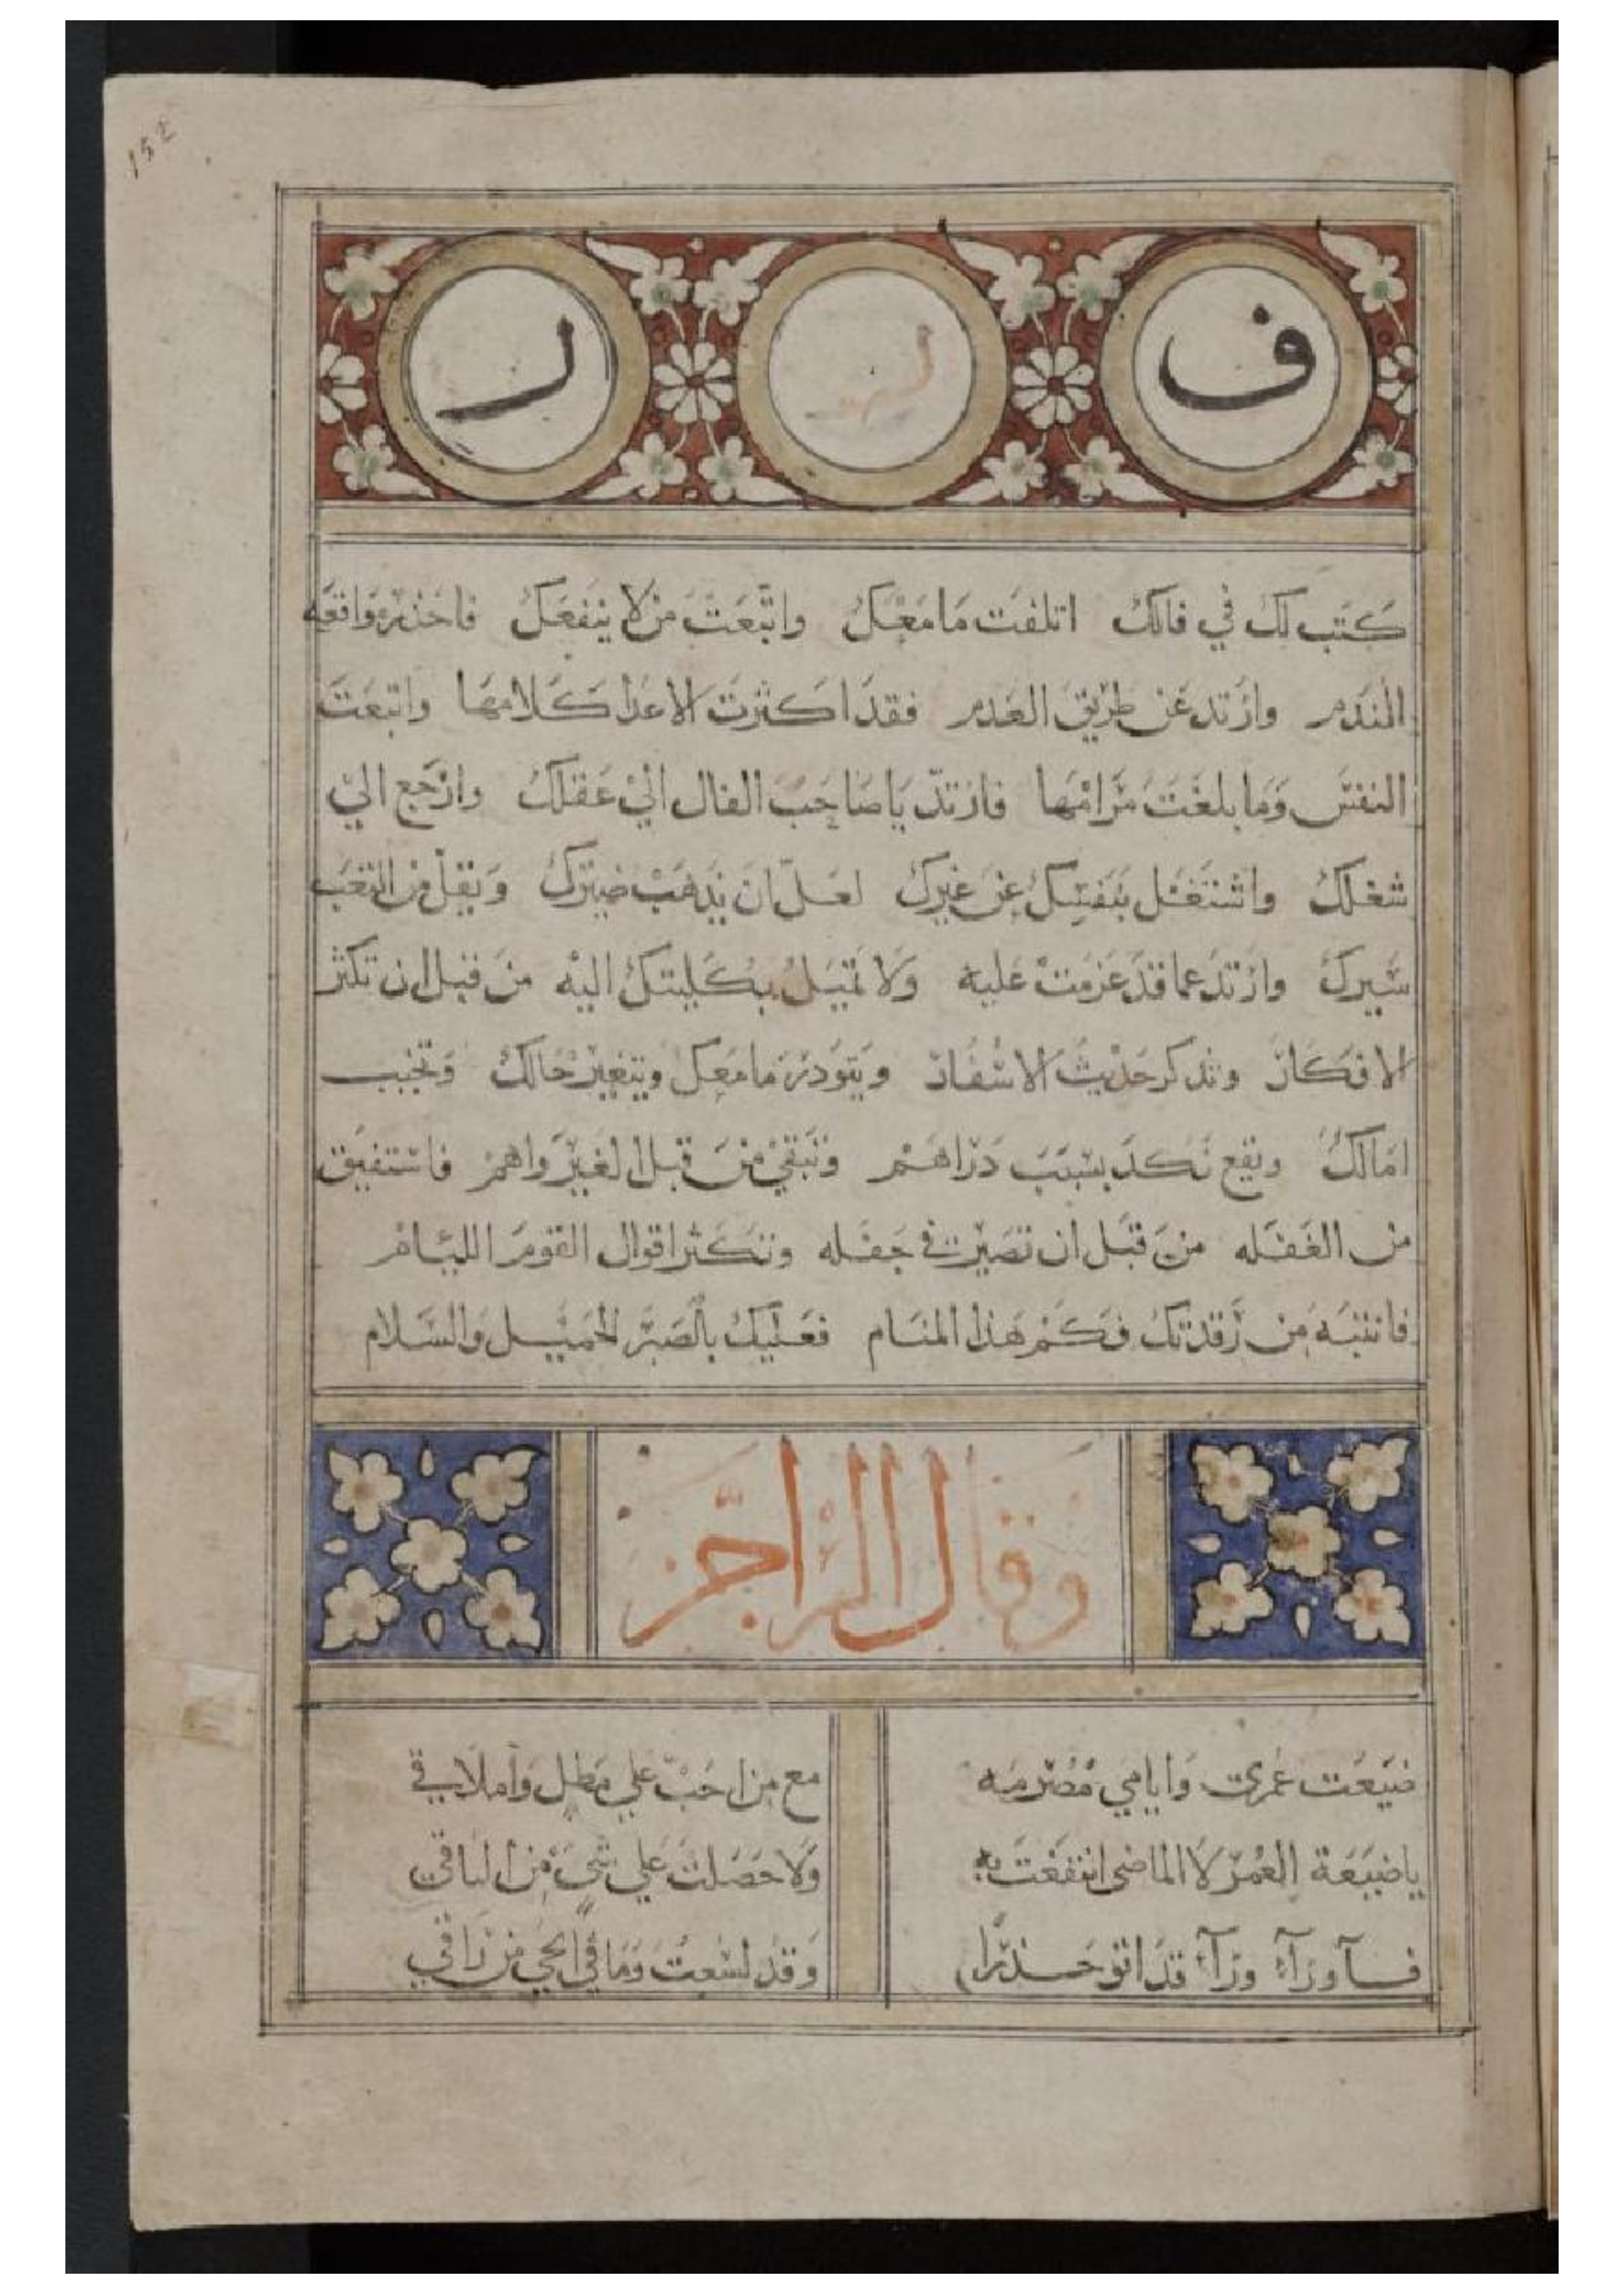 152
ف ل ل
كتب لك في فالك اتلفت ما معك واتبعت من لا ينفعك فاحذر واقعه
الندم وارتد عن طريق العدم فقد اكثرت الاعدا كلامها واتبعت
النفس وما بلغت مرامها فارتد يا صاحب الفال الي عقلك وارجع الي
شغلك واشتغل بنفسك عن غيرك لعل ان يذهب ضيرك ويقل من التعب
سيرك وارتد عما قد عزمت عليه ولا تميل بكليتك اليه من قبل ان تكثر
الافكار وتذكر حديث الاسفار ما معك ويتغير حالك وتخيب
امالك وتقع نكد بسبب دراهم وتبقي من قبل الغير واهم فاستفيق
من الغفله من قبل ان تصير في جفله وتكثر اقوال القوم الليام
فانتبه من رقدتك فكم هذا المنام فعليك بالصبر الجميل والسلام
وقال الراجز
ضيعت عمري وايامي مصرمه مع من احب علي مطل واملاق
يا ضيعة العمر لا الماضي انتفعت به ولا حصلت علي شي من الباقي
ورآء ورآء قد حذرا وقد لسعت وما في الحي من راقي